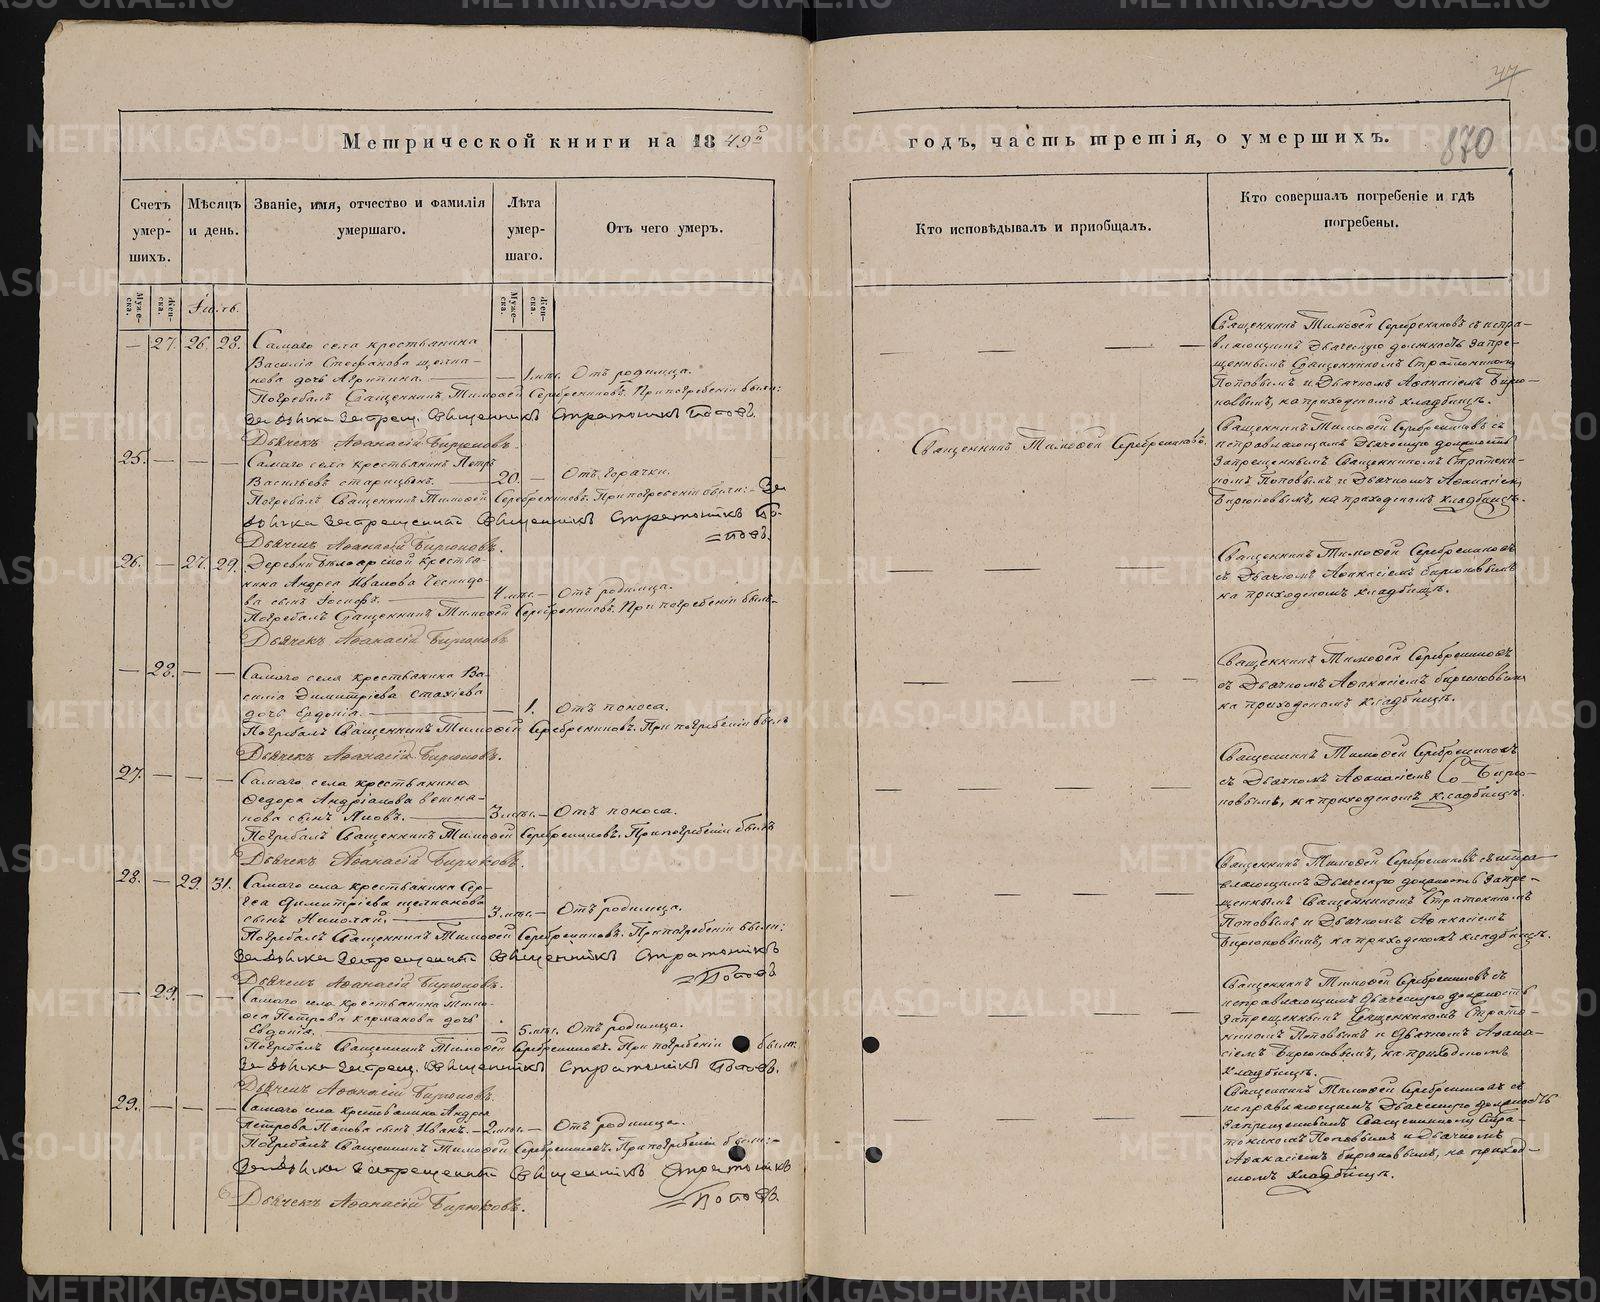 47
Метрической книги на 1849й
годъ, часть третія, о умершихъ.
870
Счетъ умер-шихъ.
Мѣсяцъ и день.
Званіе, имя, отчество и фамилія умершаго.
Лѣта умер-шаго.
Отъ чего умеръ.
Кто исповѣдывалъ и приобщалъ.
Кто совершалъ погребеніе и гдѣ погребены.
Муже-ска.
Жен-ска.
Іюль.
Муже-ска.
Жен-ска.
— 27. 26. 28. Самаго села крестьянина
Василія Стефанова
дочь Агрипина. — 1 мѣс. Отъ родимца.
Погребалъ Священникъ Тимофей Серебрениковъ. При погребеніи были:
За дьячка Запрещ. Священникъ Стратоникъ Поповъ.
Дьячекъ Афанасій Бирюковъ.
Священникъ Тимофей Серебрениковъ съ испра-
вляющимъ Дьяческую должность Запре-
щеннымъ Священникомъ Стратоникомъ
Поповымъ и Дьячкомъ Афанасіемъ Бирю-
ковымъ, на приходскомъ кладбищѣ.
25. — — — Самаго села крестьянинъ Петръ
Васильевъ старицынъ. 20. — Отъ горячки.
Погребалъ Священникъ Тимофей Серебрениковъ. При погребеніи были: За
дьячка Запрещенный Священникъ Стратоникъ По-
=повъ.
Дьячекъ Афанасій Бирюковъ.
Священникъ Тимофей Серебрениковъ.
Священникъ Тимофей Серебрениковъ съ
исправляющимъ Дьяческую должность
Запрещеннымъ Священникомъ Стратони-
комъ Поповымъ и Дьячкомъ Афанасіемъ
Бирюковымъ, на приходскомъ кладбищѣ.
26. — 27. 29. Деревни Бѣлоярской крестья-
нина Андрея Иванова
сынъ Іосифъ. 4 мѣс. — Отъ родимца.
Погребалъ Священникъ Тимофей Серебрениковъ. При погребеніи былъ
Дьячекъ Афанасій Бирюковъ
Священникъ Тимофей Серебрениковъ
съ Дьячкомъ Афанасіемъ Бирюковымъ
на приходскомъ кладбищѣ.
— 28. — — Самаго села крестьянина Ва-
силія Димитріева стахіева
дочь Евдокія. — 1. Отъ поноса.
Погребалъ Священникъ Тимофей Серебрениковъ. При погребеніи былъ
Дьячекъ Афанасій Бирюковъ.
Священникъ Тимофей Серебрениковъ
съ Дьячкомъ Афанасіемъ Бирюковымъ
на приходскомъ кладбищѣ.
27. — — — Самаго села крестьянина
Федора Андріанова
сынъ Іаковъ. 3 мѣс. — Отъ поноса.
Погребалъ Священникъ Тимофей Серебрениковъ. При погребеніи былъ
Дьячекъ Афанасій Бирюковъ.
Священникъ Тимофей Серебрениковъ
съ Дьячкомъ Афанасіемъ Бирю-
ковымъ, на приходскомъ кладбищѣ.
28. — 29. 31. Самаго села крестьянина Сер-
гея Димитріева щелканова
сынъ Николай. 3 мѣс. — Отъ родимца.
Погребалъ Священникъ Тимофей Серебрениковъ. При погребеніи были:
За дьячка Запрещенный Священникъ Стратоникъ
=Поповъ
Дьячекъ Афанасій Бирюковъ.
Священникъ Тимофей Серебрениковъ съ испра-
вляющимъ Дьяческую должность Запре-
щеннымъ Священникомъ Стратоникомъ
Поповымъ и Дьячкомъ Афанасіемъ
Бирюковымъ, на приходскомъ кладбищѣ.
— 29. — — Самаго села крестьянина Тимо-
фея Петрова карманова дочь
Евдокія. — 5 мѣс. Отъ родимца.
Погребалъ Священникъ Тимофей Серебрениковъ. При погребеніи были:
За дьячка Запрещ. Священникъ Стратоникъ Поповъ.
Дьячекъ Афанасій Бирюковъ.
Священникъ Тимофей Серебрениковъ съ
исправляющимъ Дьяческую должность
Запрещеннымъ Священникомъ Страто-
никомъ Поповымъ и Дьячкомъ Афана-
сіемъ Бирюковымъ, на приходскомъ
кладбищѣ.
29. — — — Самаго села крестьянина Андрея
Петрова Попова сынъ Иванъ. 2 мѣс. — Отъ родимца.
Погребалъ Священникъ Тимофей Серебрениковъ. При погребеніи были:
За дьячка Запрещенный Священникъ Стратоникъ
=Поповъ.
Дьячекъ Афанасій Бирюковъ.
Священникъ Тимофей Серебрениковъ съ
исправляющимъ Дьяческую должность
Запрещеннымъ Священникомъ Стра-
тоникомъ Поповымъ и Дьячкомъ
Афанасіемъ Бирюковымъ, на приход-
скомъ кладбищѣ.
METRIKI.GASO-URAL.RU